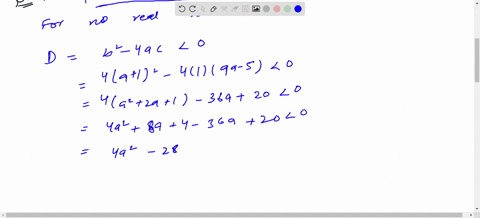 For no real
D = b² - 4ac < 0
= 4(a+1)² - 4(1)(9a-5) < 0
= 4(a²+2a+1) - 36a + 20 < 0
= 4a² + 8a + 4 - 36a + 20 < 0
= 4a² - 28